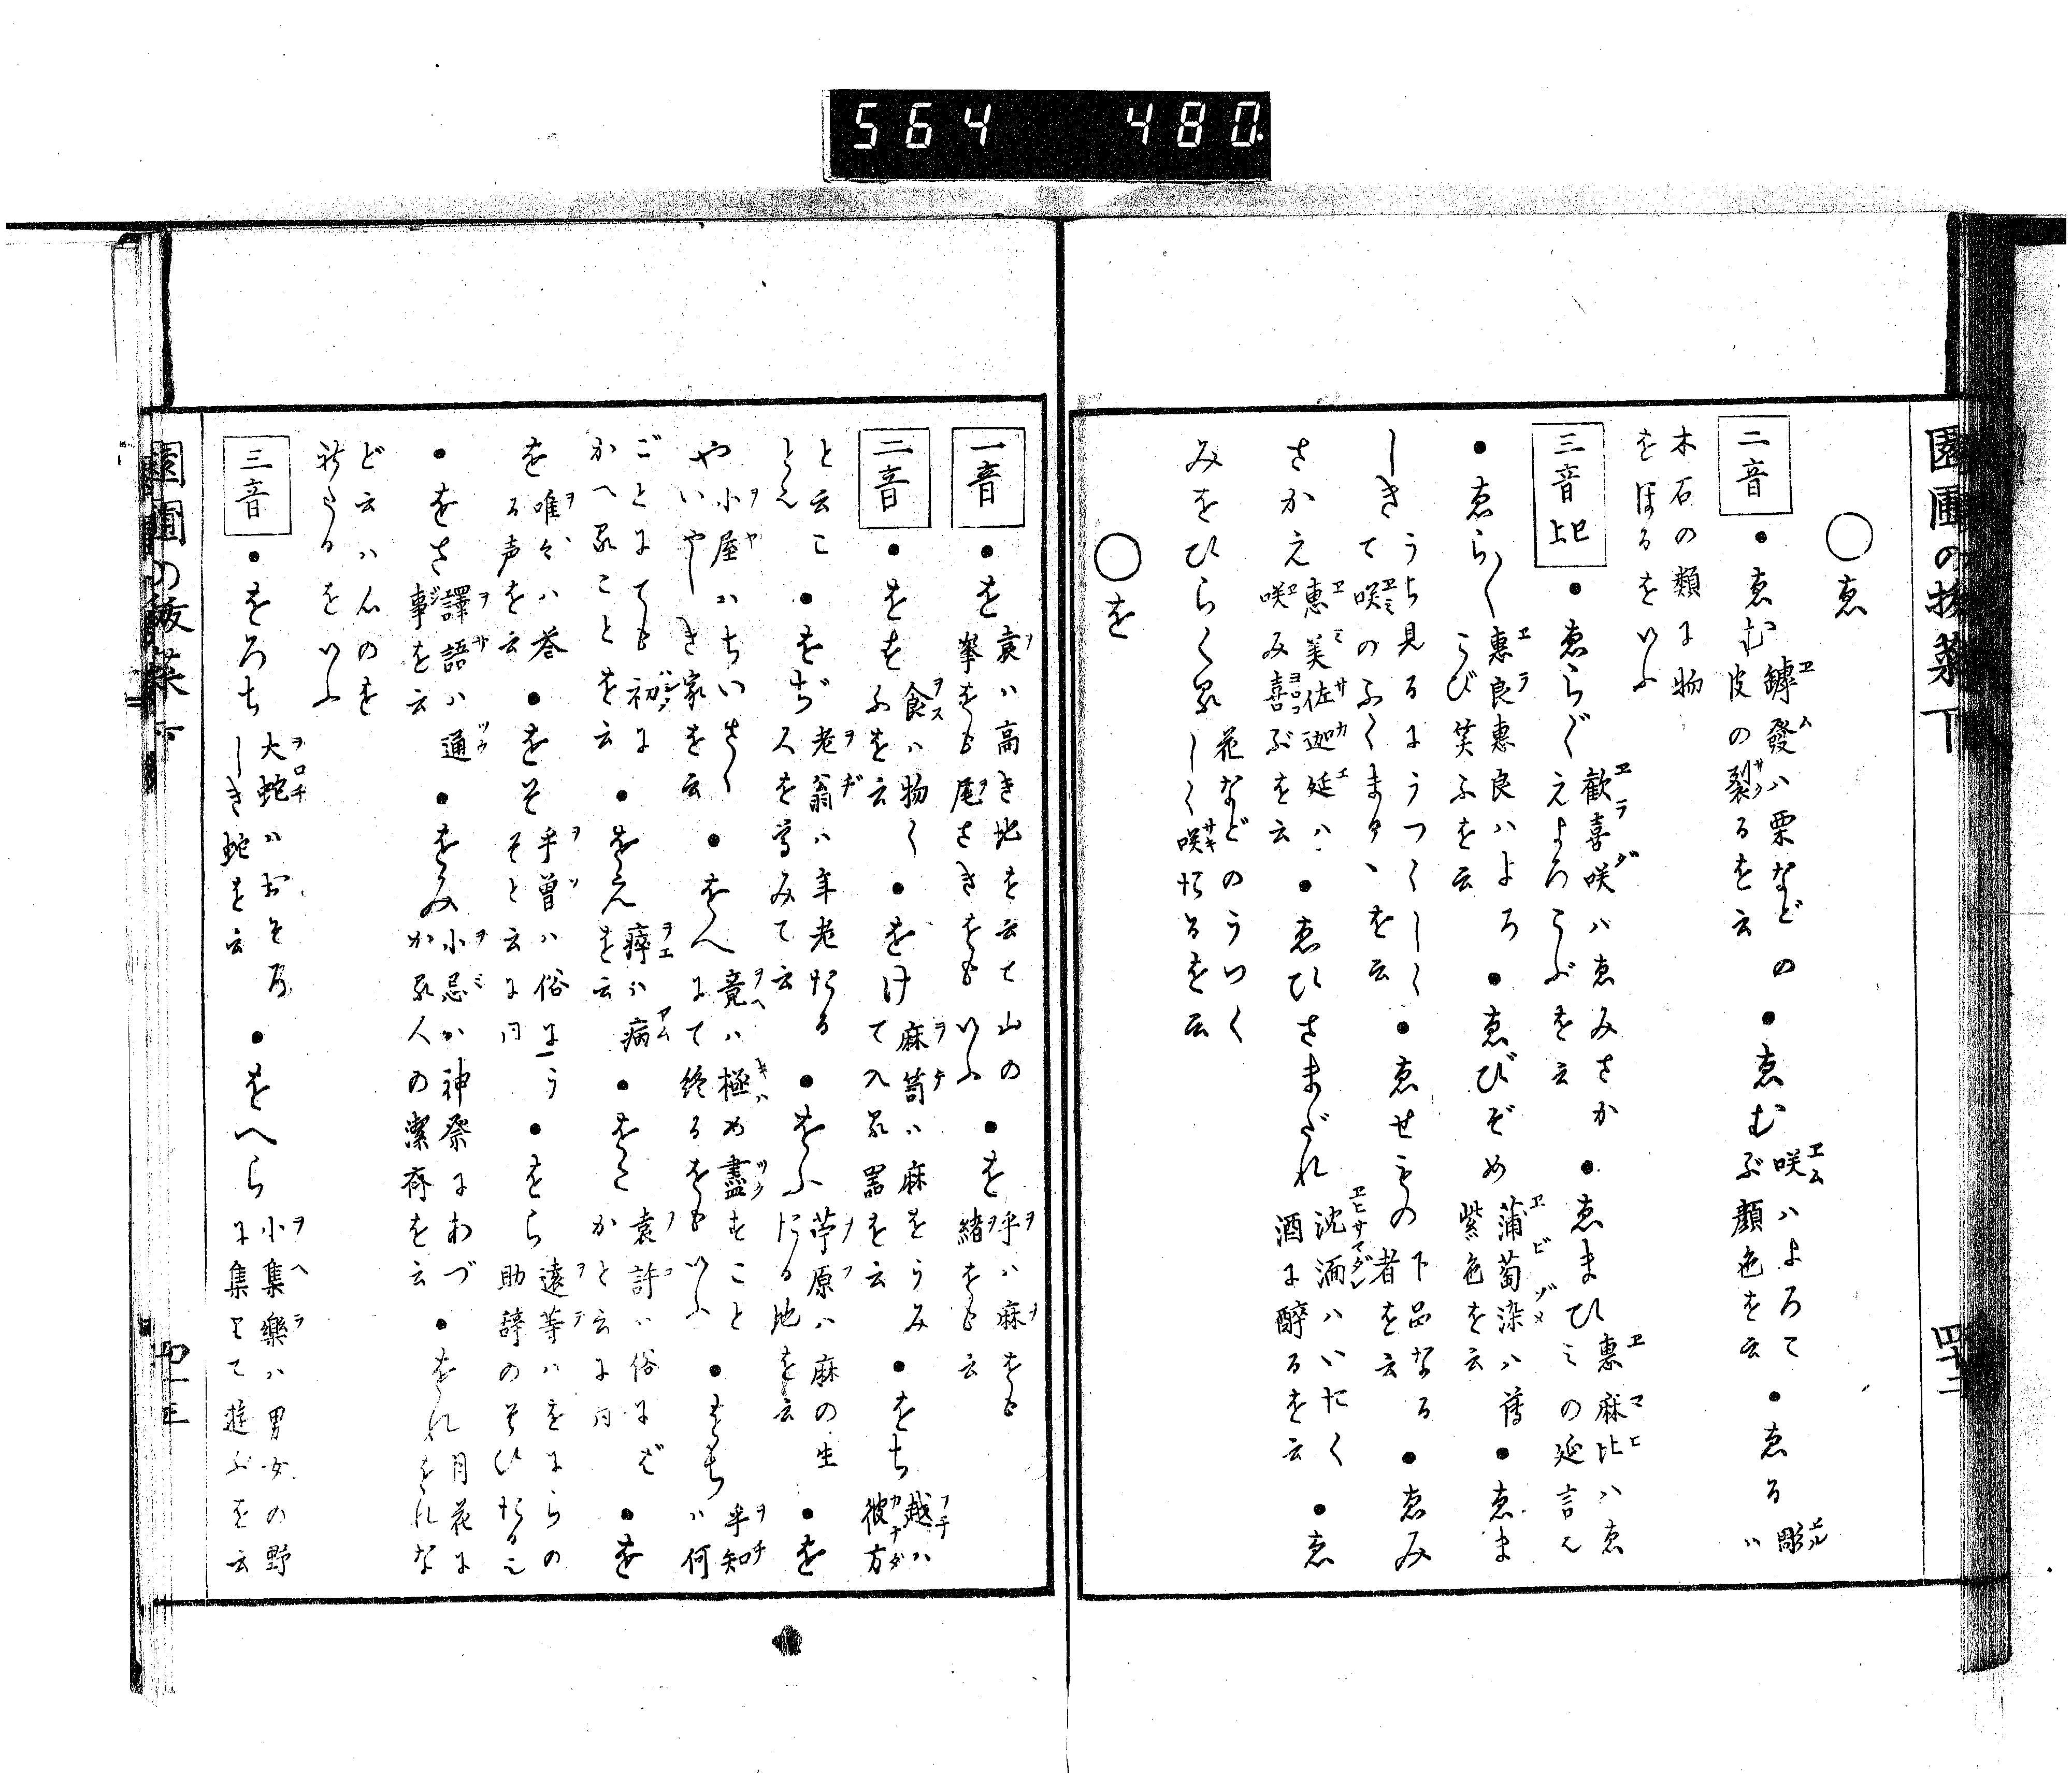 564 480
園圃の抜菜 下
四十二
○ゑ
二音 ●ゑむ 罅發ハ栗などの皮の裂るを云 ●ゑむ 咲ハよろこぶ顔色を云 ●ゑる 彫ハ
木石の類に物をほるをいふ
三音上 ●ゑらぐ 歡喜咲ハゑみさかえよろこぶを云 ●ゑまひ 惠麻比ハゑミの延言也
●ゑら〳〵 惠良惠良ハよろこび笑ふを云 ●ゑびぞめ 蒲萄染ハ薄紫色を云 ●ゑま
しき うち見るにうつくしくて咲のふくまるゝを云 ●ゑせもの 下品なる者を云 ●ゑみ
さかえ 惠美佐迦延ハ咲み喜ぶを云 ●ゑひさまだれ 沈湎ハいたく酒に醉るを云 ●ゑ
みをひらく 花などのうつくしく咲たるを云
○を
一音 ●を 袁ハ高き地を云て山の峯をも尾さきをもいふ ●を 乎ハ麻をも緒をも云
二音 ●をを 食ハ物くふを云 ●をけ 麻笥ハ麻をうみて入る器を云 ●をち 越ハ彼方
と云こと也 ●をぢ 老翁ハ年老たる人を尊みて云 ●をふ 苧原ハ麻の生たる地を云 ●を
や 小屋ハちいさくいやしき家を云 ●をへ 竟ハ極め盡すことにて終るをもいふ ●をち 乎知ハ何
ごとにても初にかへることを云 ●をえ 瘁ハ病を云 ●をこ 袁許ハ俗にばかと云に同 ●を
を 唯々ハ答る声を云 ●をそ 乎曽ハ俗にうそと云に同 ●をら 遠等ハをにらの助辞のそひたる也
●をさ 譯語ハ通事を云 ●をみ 小忌ハ神祭にあづかる人の潔斎を云 ●をれ 月花にをれな
ど云ハ心のを折たるをいふ
三音 ●をろち 大蛇ハおそろしき蛇を云 ●をへら 小集樂ハ男女の野に集りて遊ぶを云
四十三